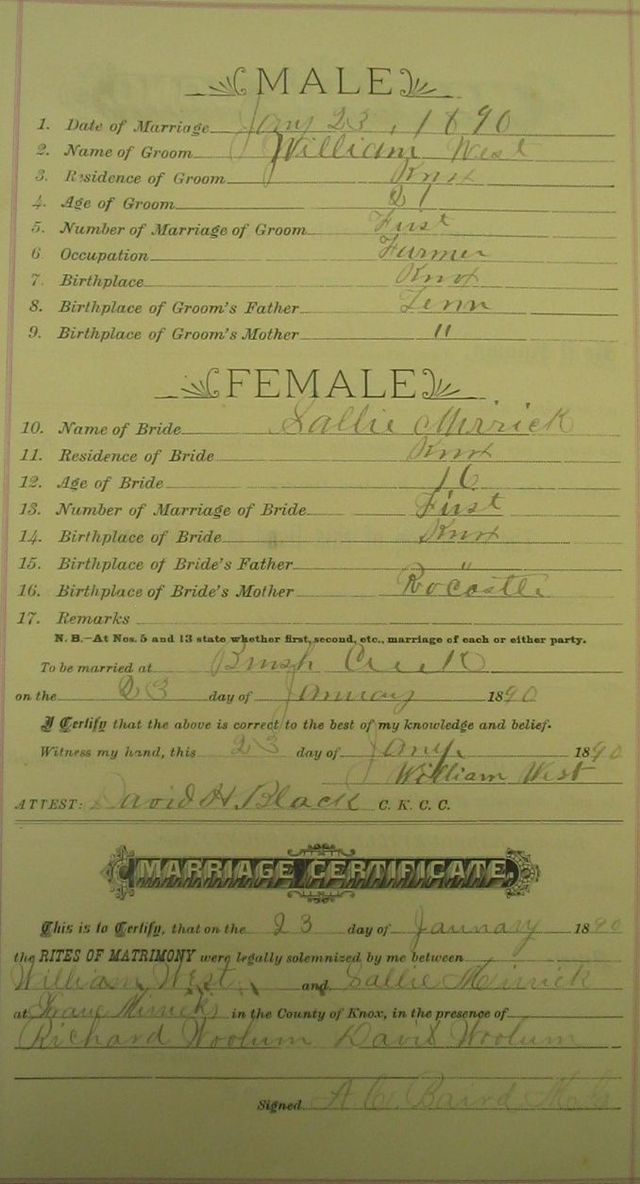 MALE
1. Date of Marriage Jany 23, 1890
2. Name of Groom William West
3. Residence of Groom Knox
4. Age of Groom 21
5. Number of Marriage of Groom First
6. Occupation Farmer
7. Birthplace Knox
8. Birthplace of Groom's Father Tenn
9. Birthplace of Groom's Mother "
FEMALE
10. Name of Bride Sallie Mirrick
11. Residence of Bride Knox
12. Age of Bride 16
13. Number of Marriage of Bride First
14. Birthplace of Bride Knox
15. Birthplace of Bride's Father "
16. Birthplace of Bride's Mother Rocastle
17. Remarks
N. B.—At Nos. 5 and 13 state whether first, second, etc., marriage of each or either party.
To be married at Brush Creek
on the 23 day of January 1890
I Certify that the above is correct to the best of my knowledge and belief.
Witness my hand, this 23 day of Jany. 1890
William West
ATTEST: David H. Black C. K. C. C.
MARRIAGE CERTIFICATE.
This is to Certify, that on the 23 day of January 1890
the RITES OF MATRIMONY were legally solemnized by me between
William West and Sallie Mirrick
at Mirrick's in the County of Knox, in the presence of
Richard Woolum David Woolum
Signed A. C. Baird